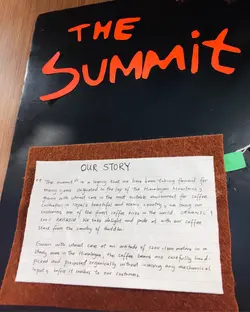 THE
SUMMIT
OUR STORY
"The Summit" is a legacy that we have been taking forward for
many years. Cultivated in the lap of the Himalayan Mountains &
grown with utmost care in the most suitable environment for coffee
Cultivation in Nepal's beautiful and scenic country, we bring our
customers one of the finest coffee bins in the world. ORGANICALLY
100% ARABICA. We take delight and pride at with our coffee
blend from the country of Buddha.
Grown with utmost care at an altitude of 1200-1600 metres in a
shady area in the Himalayas, the coffee beans are carefully hand-
picked and prepared organically without involving any mechanical
input & before it reaches to our customers.